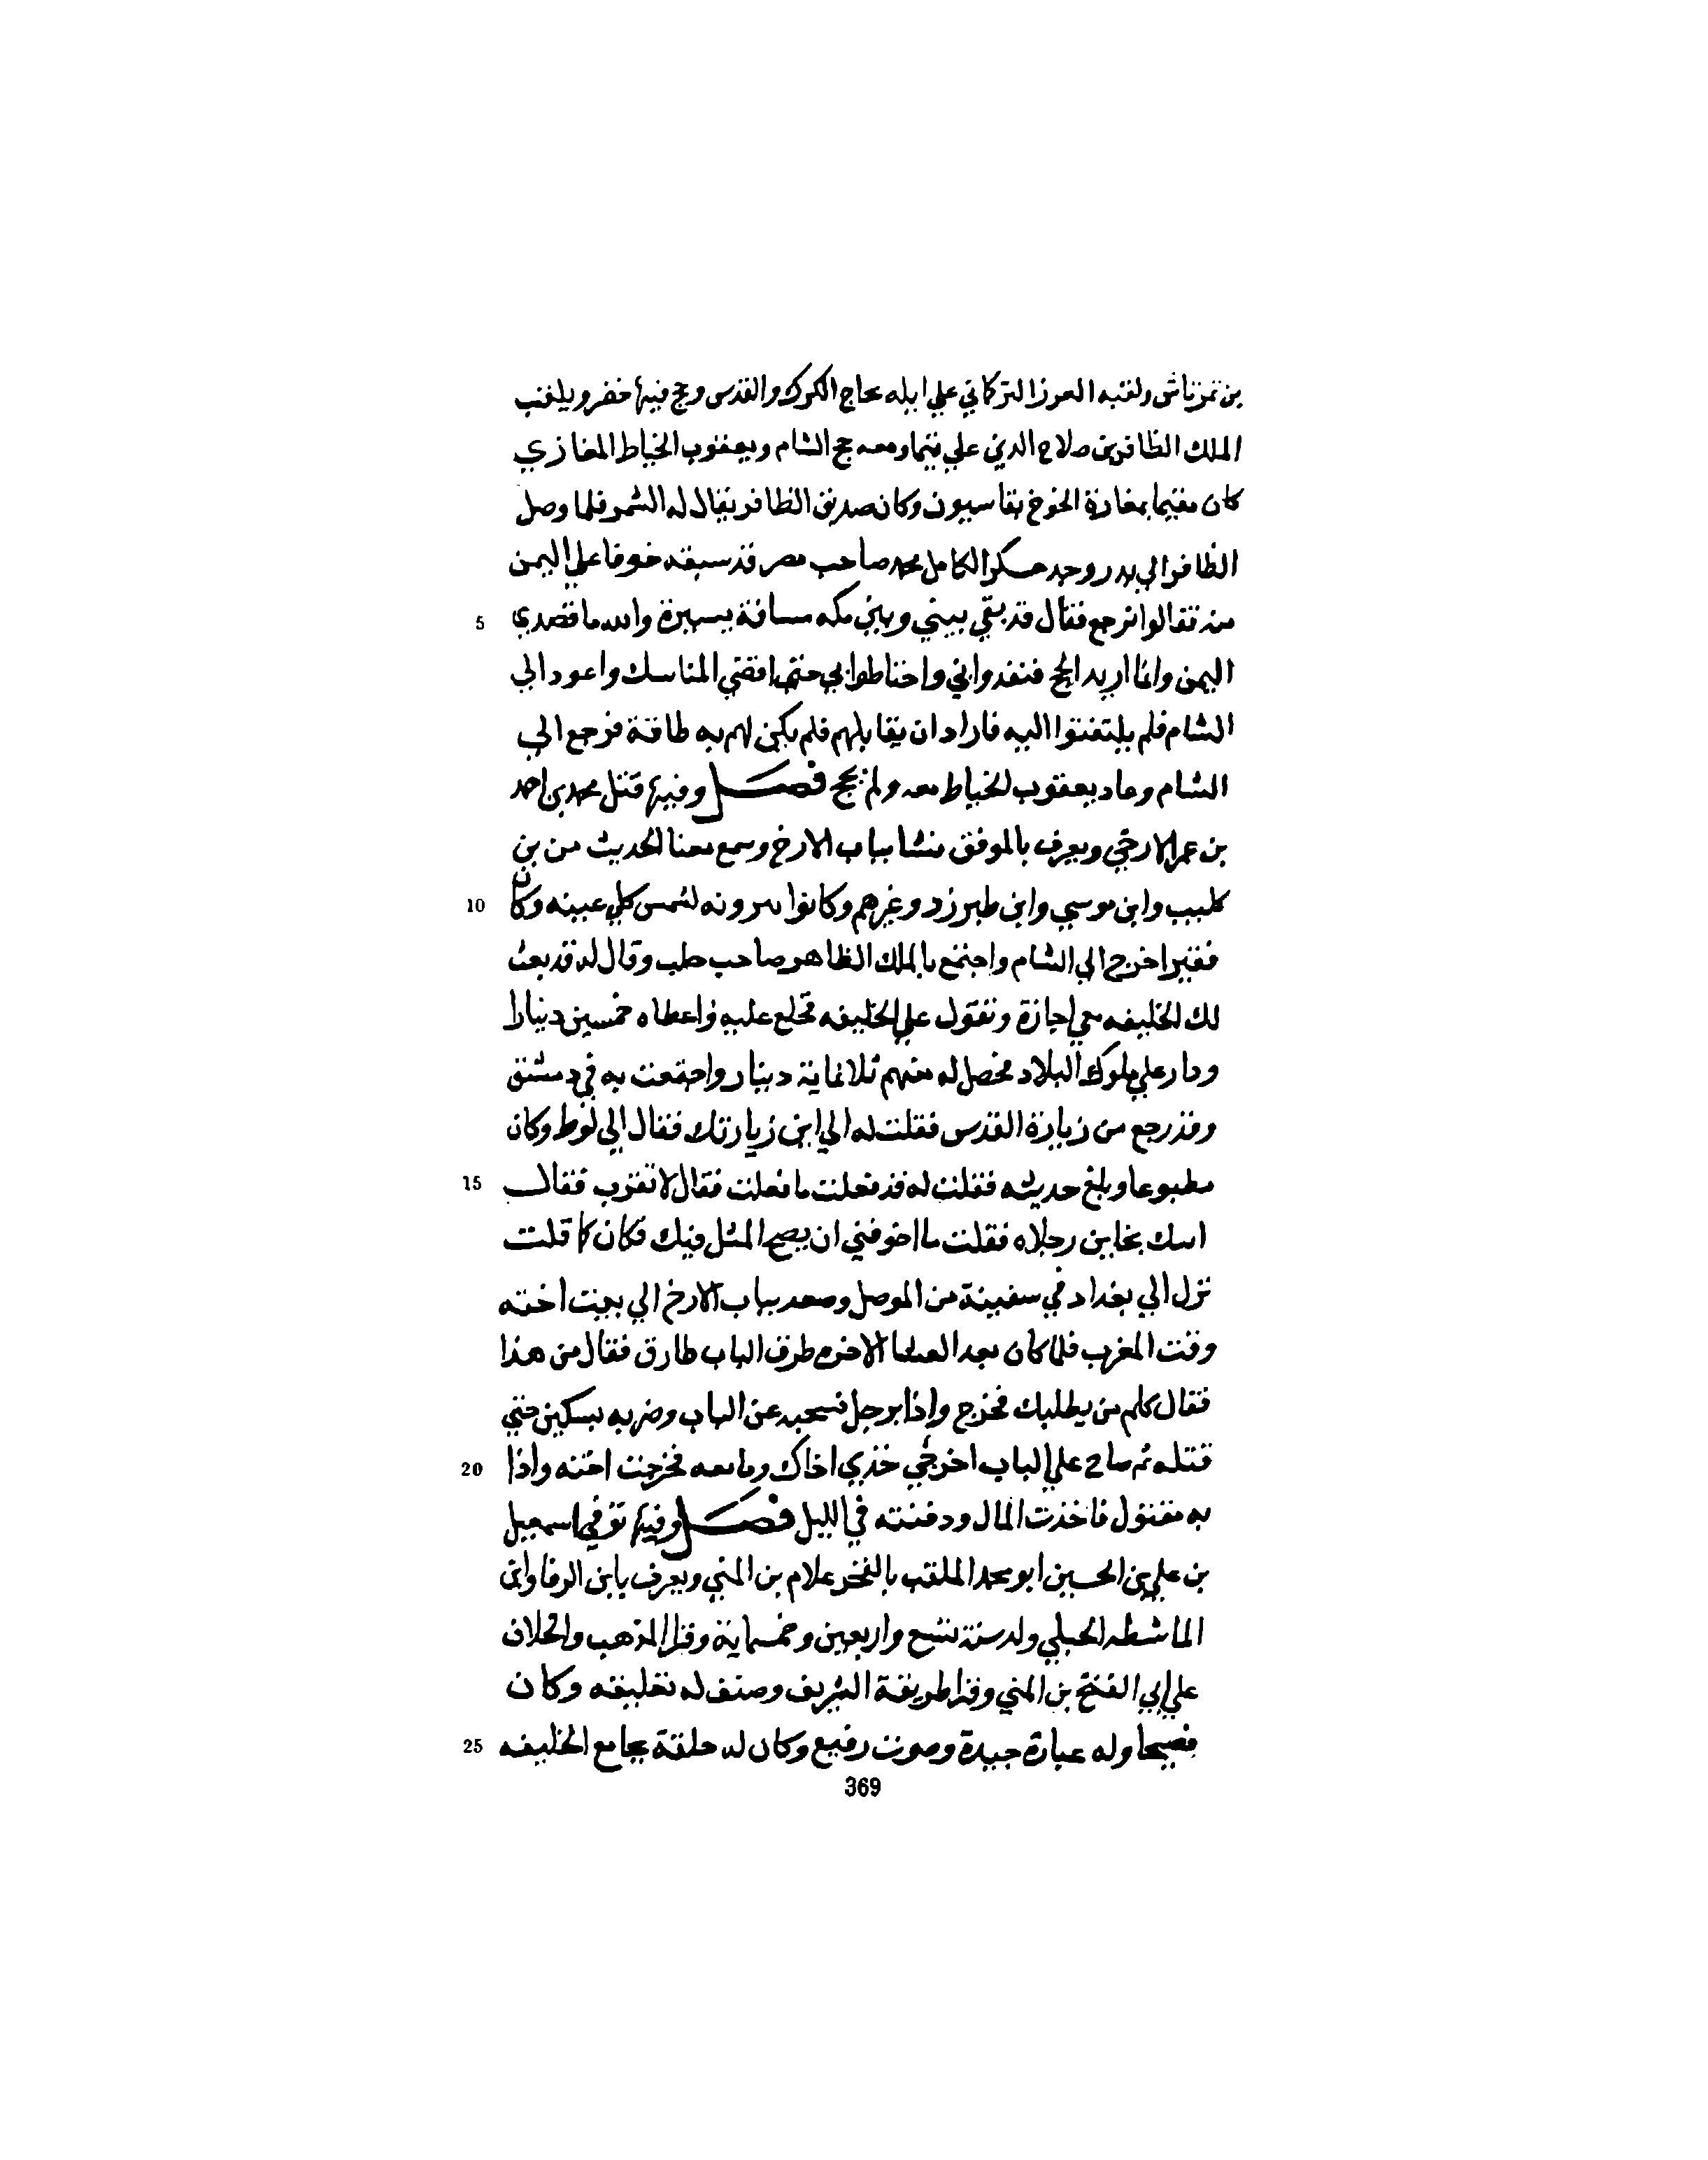 بن تمرتاش ولقبه العرز التركماني علي ايله بحاج الكرك والقدس وحج فيها خضر ويلقب
الملك الظافر بن صلاح الدين علي تيما ومعه حج الشام ويعقوب الخياط المغازي
كان مقيما بمغارة الجوع بقاسيون وكان صديق الظافر يقال له الشمر فلما وصل
الظافر الي بدر وجد عسكر الكامل محمد صاحب مصر قد سبقه خوفا علي اليمن
منه فقالوا ترجع فقال قد بقي بيني وبين مكه مسافة يسيرة والله ما قصدي
5
اليمن وانما اريد الحج فقيدوني واحتاطوا بي حتي اقضي المناسك واعود الي
الشام فلم يلتفتوا اليه فاراد ان يقاتلهم فلم يكن لهم به طاقة فرجع الي
الشام وعاد يعقوب الخياط معه ولم يحج فصل وفيها قتل محمد بن احمد
بن عمر الازجي ويعرف بالموفق نشا بباب الازج وسمع معنا الحديث من بن
كليب وابن موسي وابن طبرزد وغيرهم وكانوا يرونه لشمس كل عيينه وكان
10
فقيرا خرج الي الشام واجتمع بالملك الظاهر صاحب حلب وقال له قد بعث
لك الخليفه معي اجازة وتقول علي الخليفه فخلع عليه واعطاه خمسين دينارا
ودار علي ملوك البلاد فحصل له منهم ثلاثماية دينار واجتمعت به في دمشق
وقد رجع من زيارة القدس فقلت له الي اين زيارتك فقال الي لوط وكان
مطبوعا وبلغ حديثه فقلت له قد فعلت ما فعلت فقال لا تقرب فقال
15
اسك بخاين رجلاه فقلت ما اخوفني ان يصح المثل فيك فكان كما قلت
نزل الي بغداد في سفينة من الموصل وصعد بباب الازج الي بيت اخته
وقت المغرب فلما كان بعد العشا الاخره طرق الباب طارق فقال من هذا
فقال كلم من يطلبك فخرج واذا برجل فسحبه عن الباب وضربه بسكين حتي
قتله ثم صاح علي الباب اخرجي خذي اخاك وما معه فخرجت اخته واذا
20
به مقتول فاخذت المال ودفنته في الليل فصل وفيها توفي اسمعيل
بن علي بن الحسين ابو محمد الملقب بالفخر غلام بن المني ويعرف بابن الرفا وابن
الماشطه الحنبلي ولد سنة تسع واربعين وخمسماية وقرا المذهب والخلاف
علي ابي الفتح بن المني وقرا طريقة الشريف وصنف له تعليقه وكان
فصيحا وله عبارة جيدة وصوت رفيع وكان له حلقة بجامع الخليفه
25
369